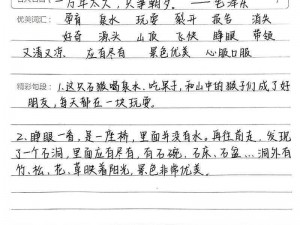 一万年太久，只争朝夕。——毛泽东
优美词汇： 孕育 泉水 玩耍 裂开 报告 消失
好奇 源头 山顶 飞快 睁眼 带领
又清又凉 应有尽有 景色优美 心服口服
精彩句段： 1、这只石猴喝泉水、吃果子，和山中的猴子们成了好
朋友，每天都在一块玩耍。
2、睁眼一看，是一座桥，里面并没有水。再往前走，发现
了一个石洞，里面应有尽有，有石碗、石床、石盆……洞外有
竹、松、花、草映着阳光，景色非常优美。